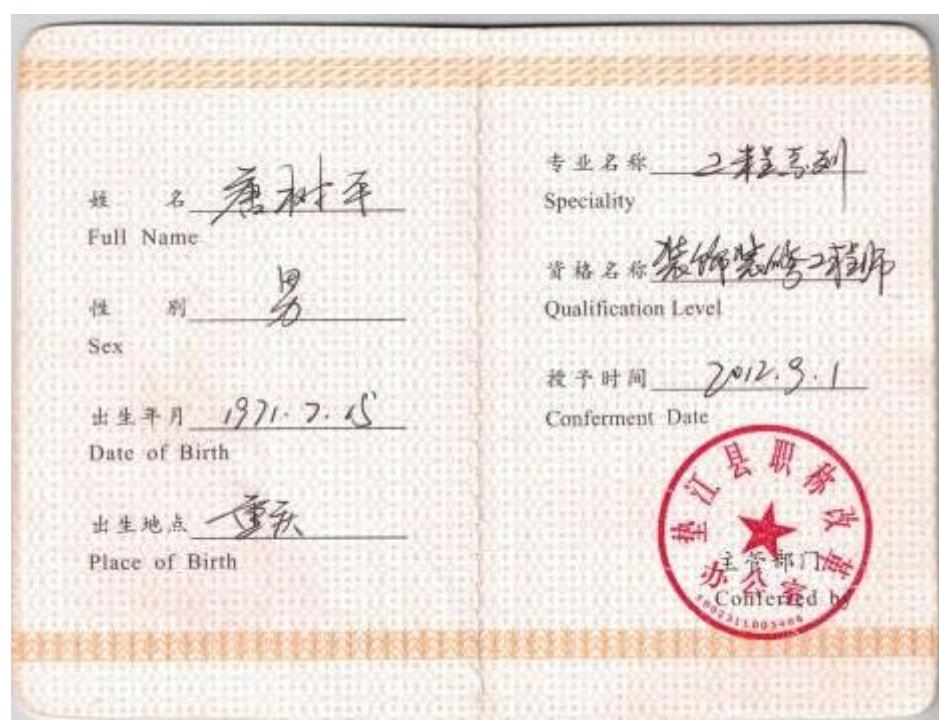 姓 名 唐树平
Full Name
性 别 男
Sex
出生年月 1971.7.15
Date of Birth
出生地点 重庆
Place of Birth
专业名称 工程系列
Speciality
资格名称 装饰装修工程师
Qualification Level
授予时间 2012.9.1
Conferment Date
垫江县职称改革
办公室
主管部门
Conferred by